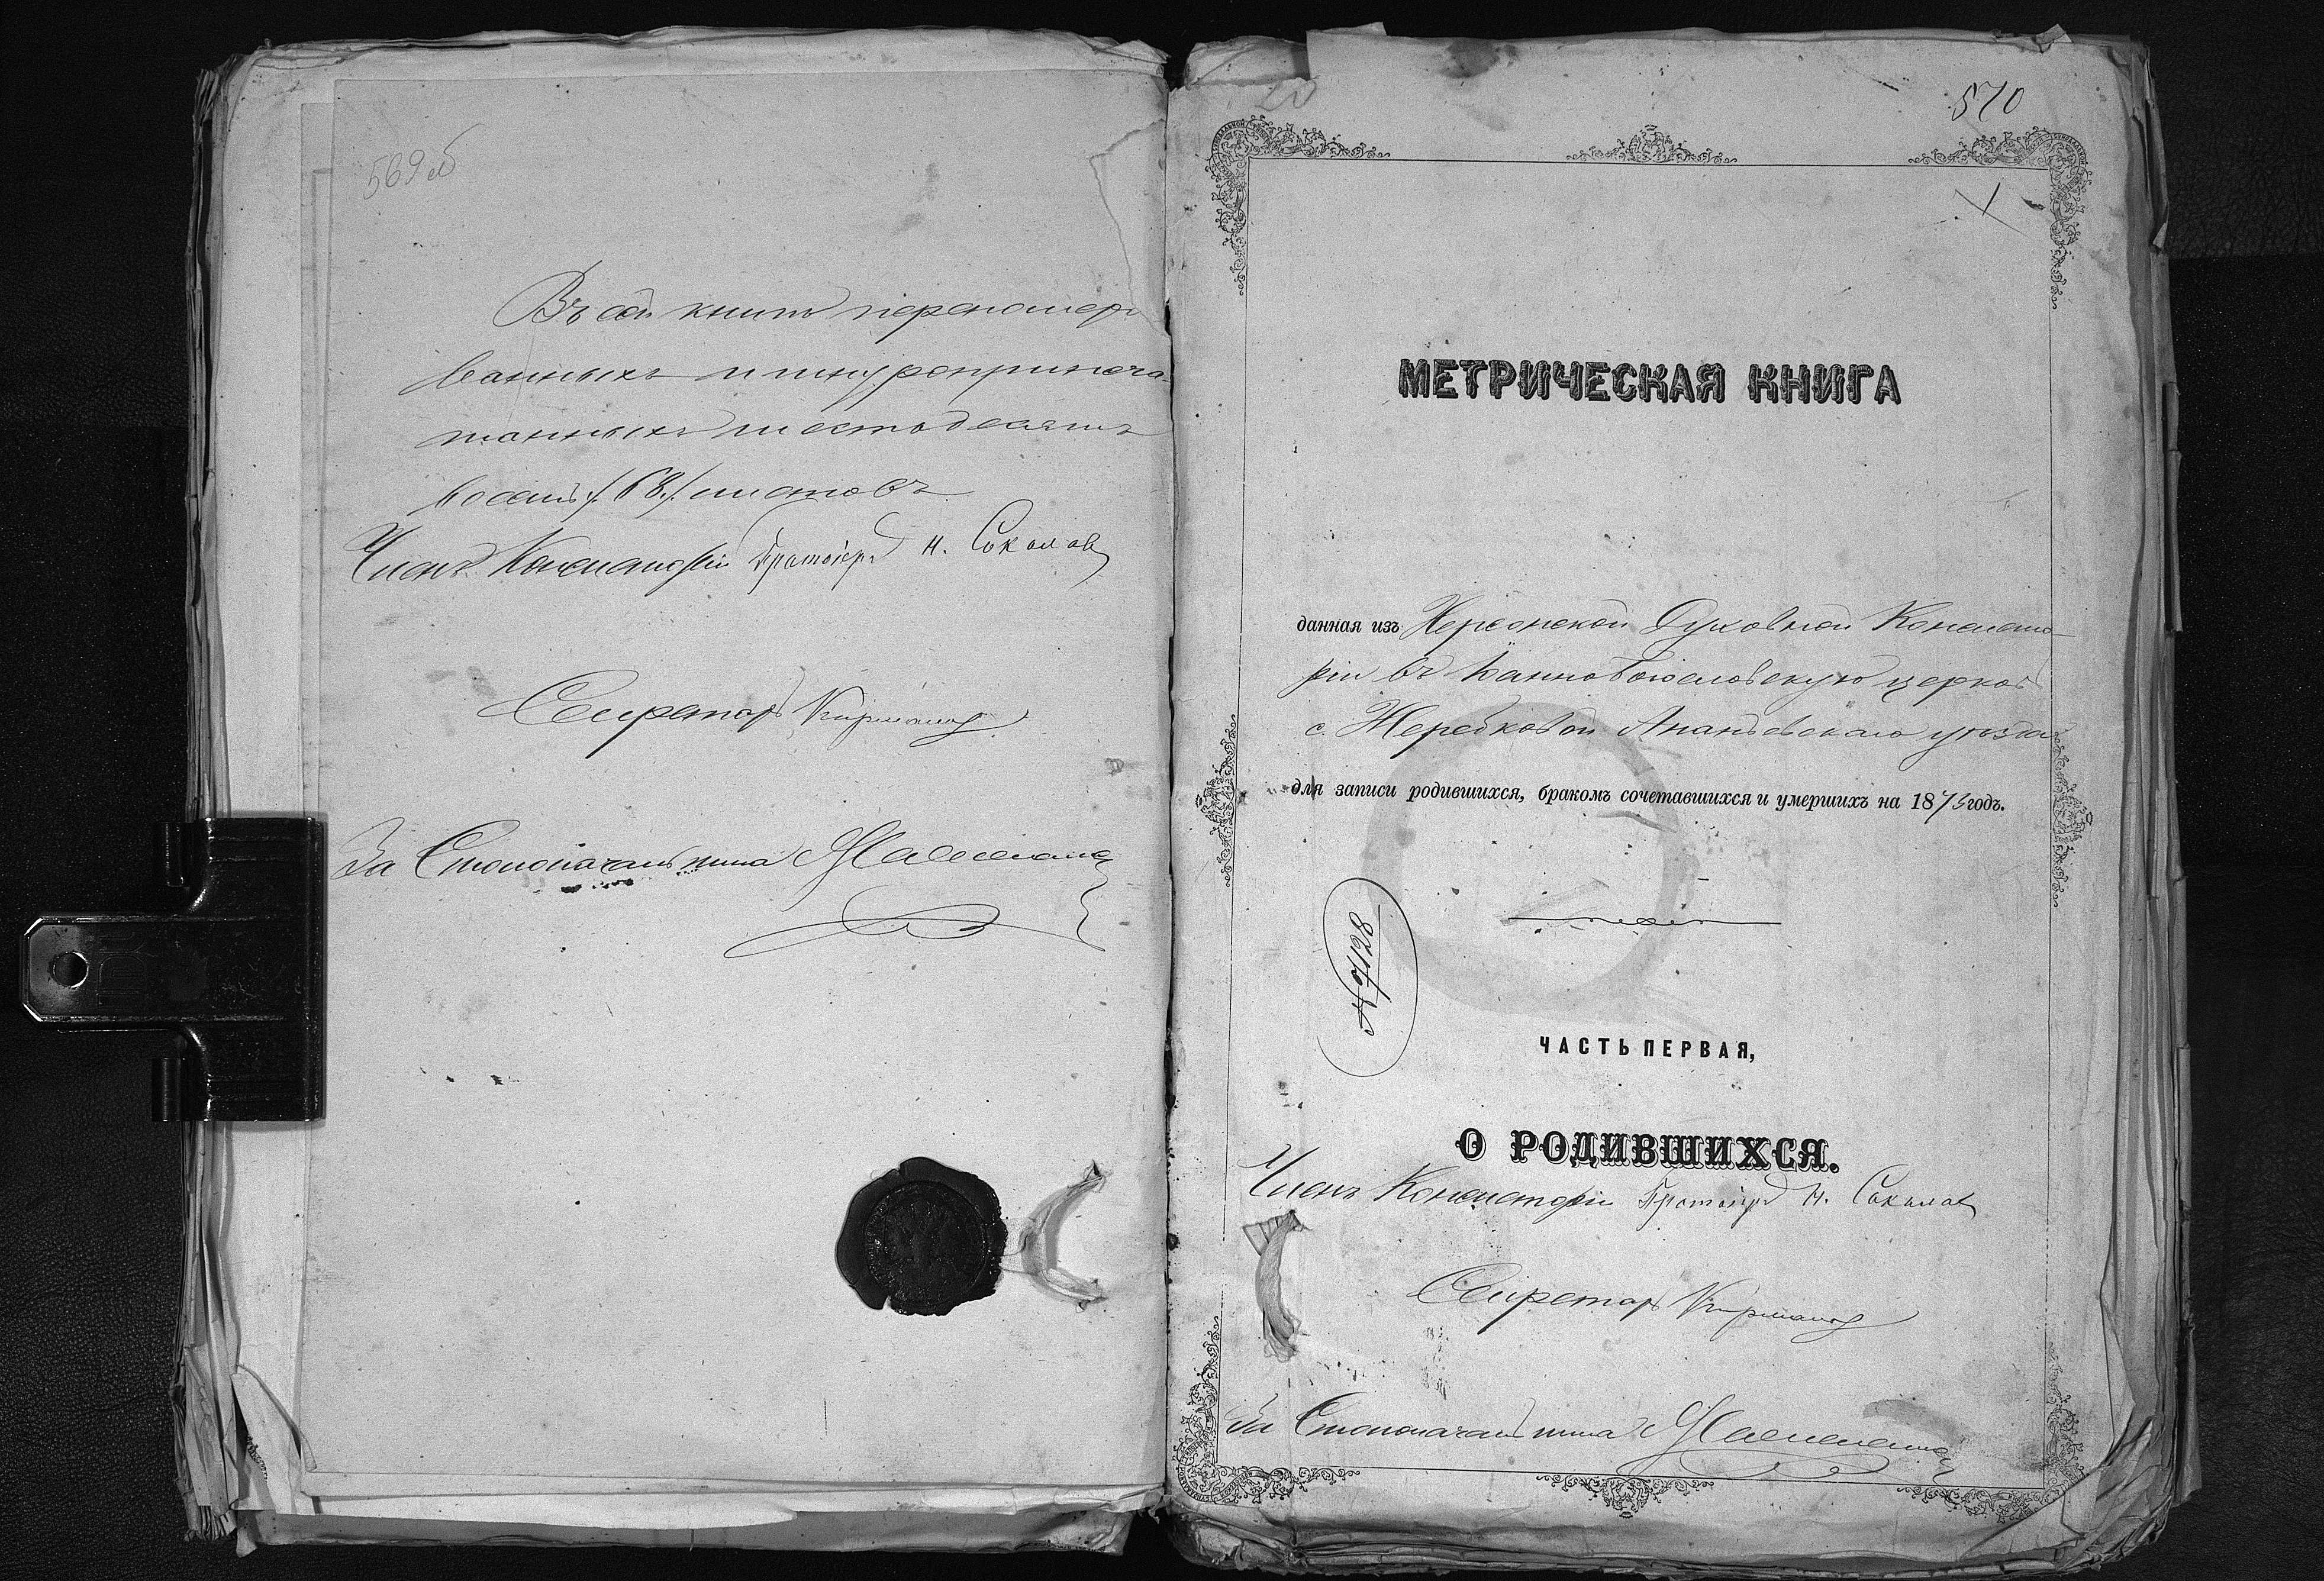 569об
Въ сей книгѣ перенумеро
ванныхъ и шнуроприпеча-
танныхъ шестьдесятъ
восемь /68./ листовъ
Членъ Консисторіи Протоіерей Н. Соколовъ
Секретарь
За Столоначальника
570
1
МЕТРИЧЕСКАЯ КНИГА
данная изъ Херсонской Духовной Консисто-
ріи въ Іоанно Богословскую церковь
с. Жеребковой Ананьевскаго уѣзда
для записи родившихся, бракомъ сочетавшихся и умершихъ на 1873 годъ.
№ 7128
ЧАСТЬ ПЕРВАЯ,
О РОДИВШИХСЯ.
Членъ Консисторіи Протоіерей Н. Соколовъ
Секретарь
За Столоначальника